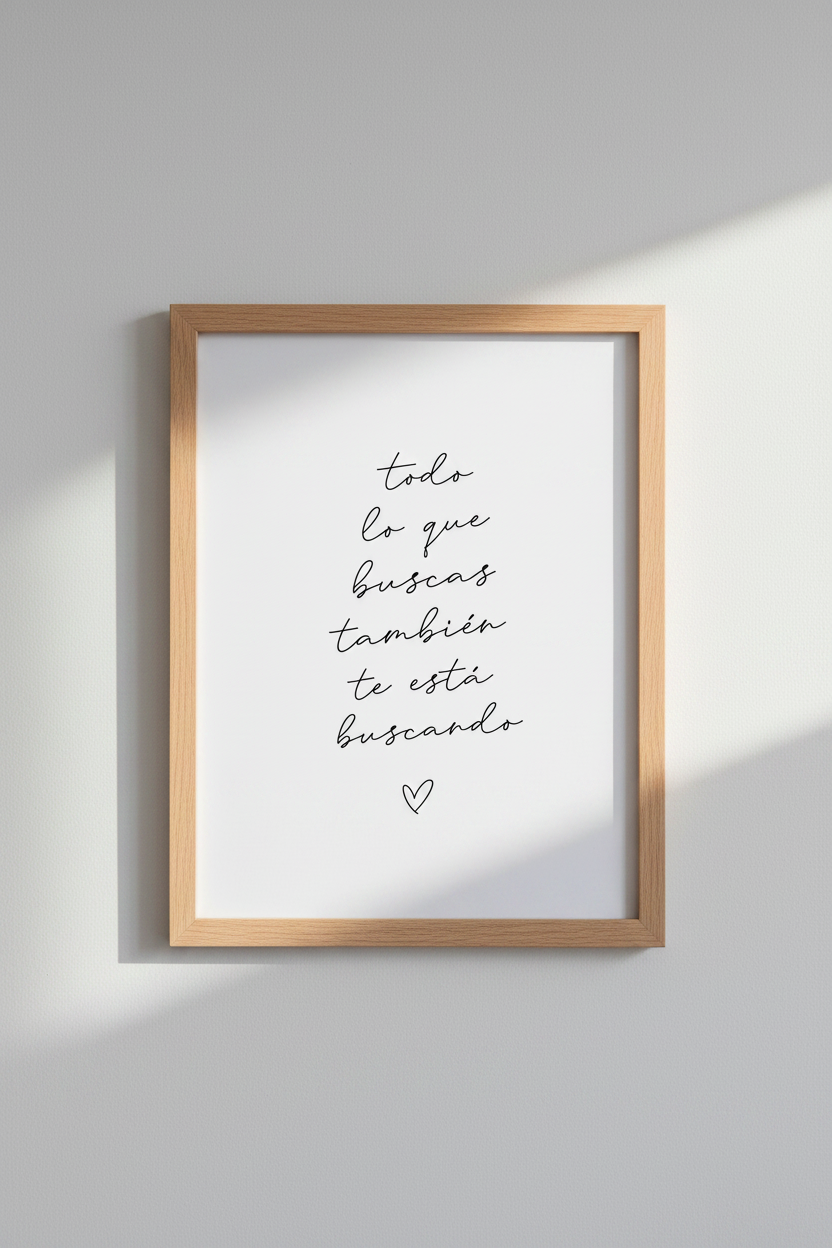 todo
lo que
buscas
también
te está
buscando